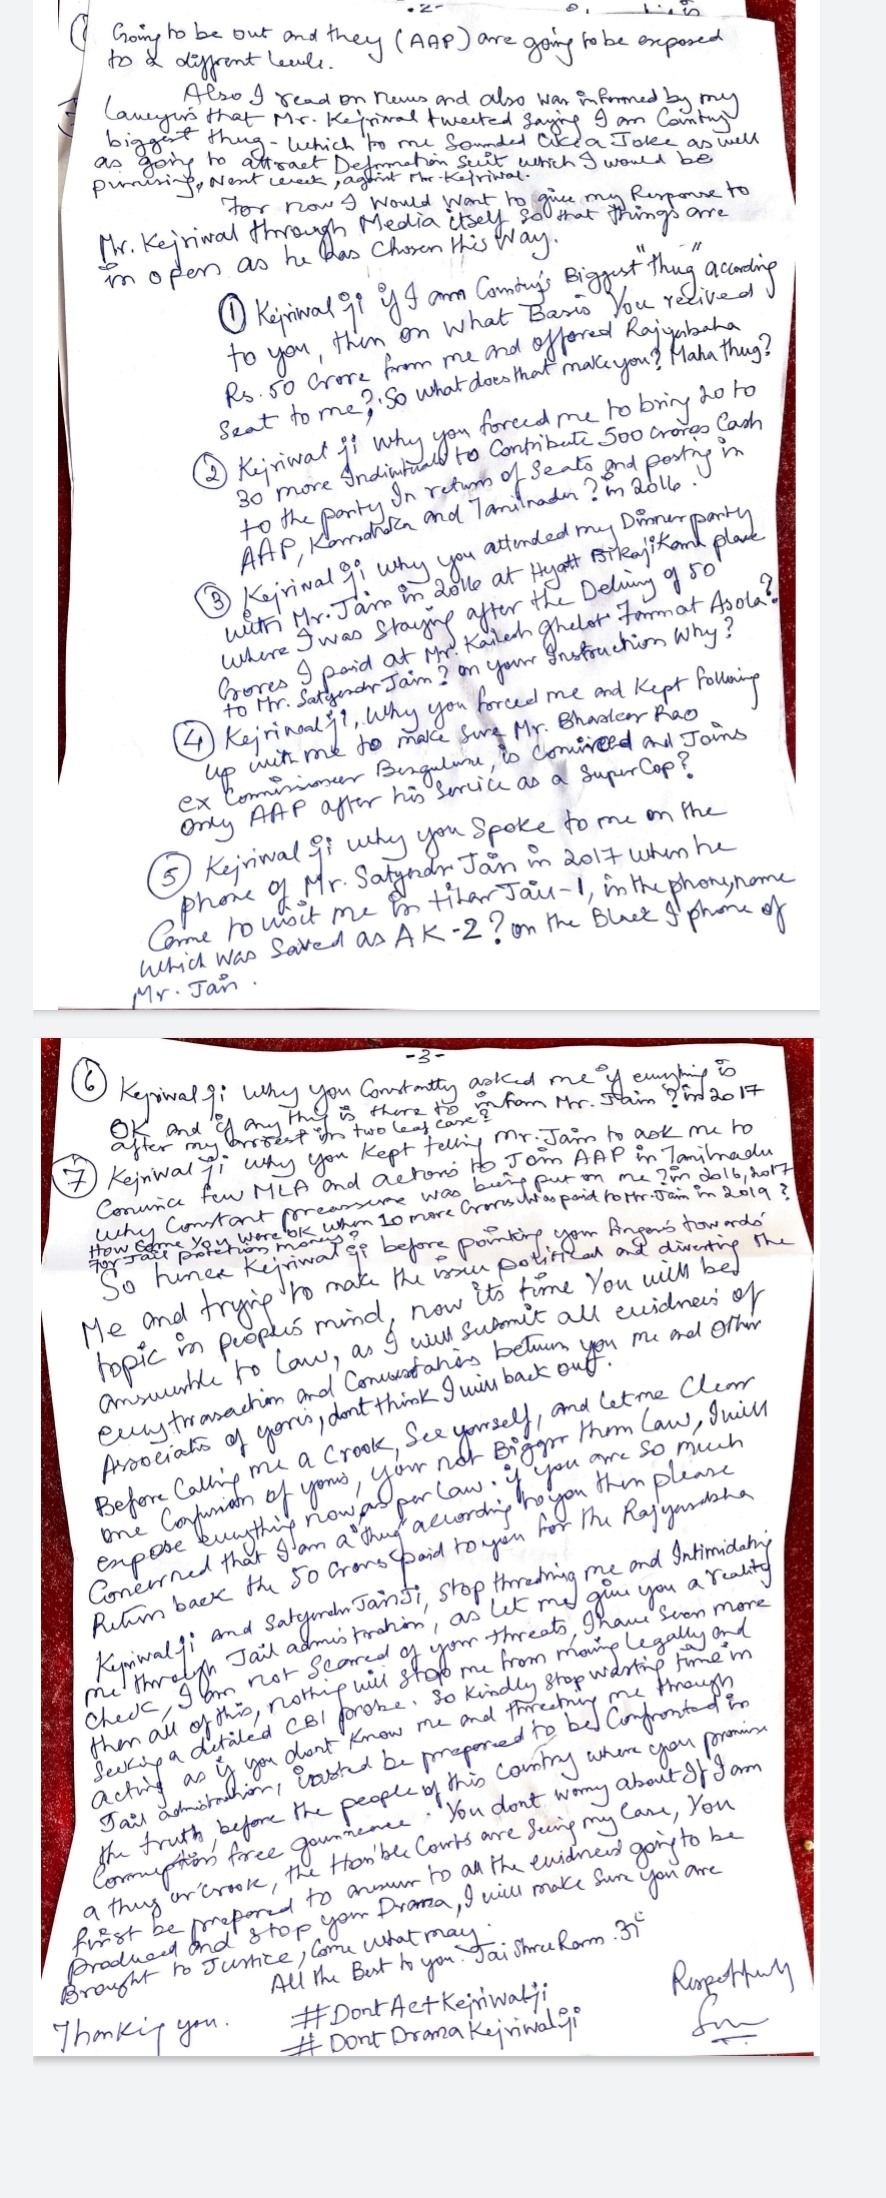 -2-
Going to be out and they (AAP) are going to be exposed
to a diffrent levels.
Also I read on News and also was informed by my
Lawyers that Mr. Kejriwal tweeted saying I am Country
biggest thug - which to me Sounded Like a Joke as well
as going to attract Defamation Suit which I would be
purusing, Next week, against Mr. Kejriwal.
For now I would want to give my Response to
Mr. Kejriwal through Media itself So that things are
in open as he has Chosen this way.
① Kejriwal ji if I am Country's Biggest "thug" according
to you, then on what Basis You recived
Rs. 50 Crore from me and offered Rajyasbaha
Seat to me?, So what does that make you? Maha thug?
② Kejriwal ji why you forced me to bring 20 to
30 more Individuals to Contribute 500 crores Cash
to the party In return of Seats and posting in
AAP, Karnataka and Tamilnadu? in 2016.
③ Kejriwal ji why you attended my Dinner party
with Mr. Jain in 2016 at Hyatt Bikajikama place
where I was Staying after the Delivery of 50
Crores I paid at Mr. Kailash Ghelot Farm at Asola?
to Mr. Satyendr Jain? on your Instruction Why?
④ Kejriwal ji, Why you forced me and Kept following
up with me to make Sure Mr. Bhasker Rao
ex Commissioner Bengulure, is Convinced and Joins
Only AAP after his Service as a Super Cop?
⑤ Kejriwal ji why you Spoke to me on the
phone of Mr. Satyendr Jain in 2017 when he
Came to visit me in tihar Jail-1, in the phone, name
which was Saved as AK-2? on the Black I phone of
Mr. Jain.
-3-
⑥ Kejriwal ji why you Constantly asked me if everything is
OK and if any thing is there to inform Mr. Jain? in 2017
after my arrest in two leaf case?
⑦ Kejriwal ji why you Kept telling Mr. Jain to ask me to
Convince few MLA and actors to Join AAP in Tamilnadu
why Constant preassure was being put on me? in 2016, 2017
How Come You were OK when 10 more Crores was paid to Mr. Jain in 2019?
for Jail protetion money?
So hence Kejriwal ji before pointing your fingers towards
Me and trying to make the issue political and diverting the
topic in people's mind, now its time You will be
answerble to Law, as I will Submit all evidneis of
every transaction and Conversations between you me and Other
Associates of yours, dont think I will back out.
Before Calling me a Crook, See yourself, and let me Clear
one Confusion of yours, your not Bigger then Law, I will
expose everything now as per Law. if you are So much
Concerned that I am a "thug" according to you then please
Return back the 50 Crores I paid to you for the Rajyasabha
Kejriwal ji and Satyendr Jain Ji, stop thretning me and Intimidating
me through Jail administration, as let me give you a reality
Check, I am not Scarred of your threats, I have Seen more
then all of this, nothing will stop me from moving legally and
Seeking a detailed CBI probe. So kindly stop wasting time in
acting as if you dont Know me and thretning me through
Jail administration, insted be preapared to be Confronted in
the truth, before the people of this Country where you promise
Corruption free gouvneance. You dont worry about If I am
a thug or Crook, the Hon'ble Courts are Seing my Case, You
first be preapared to answer to all the evidneis going to be
produced and Stop your Drama, I will make Sure you are
Brought to Justice, Come what may.
All the Best to you. Jai Shree Ram.
Thanking you.
Respectfully
#DontActKejriwalji
#DontDramaKejriwalji